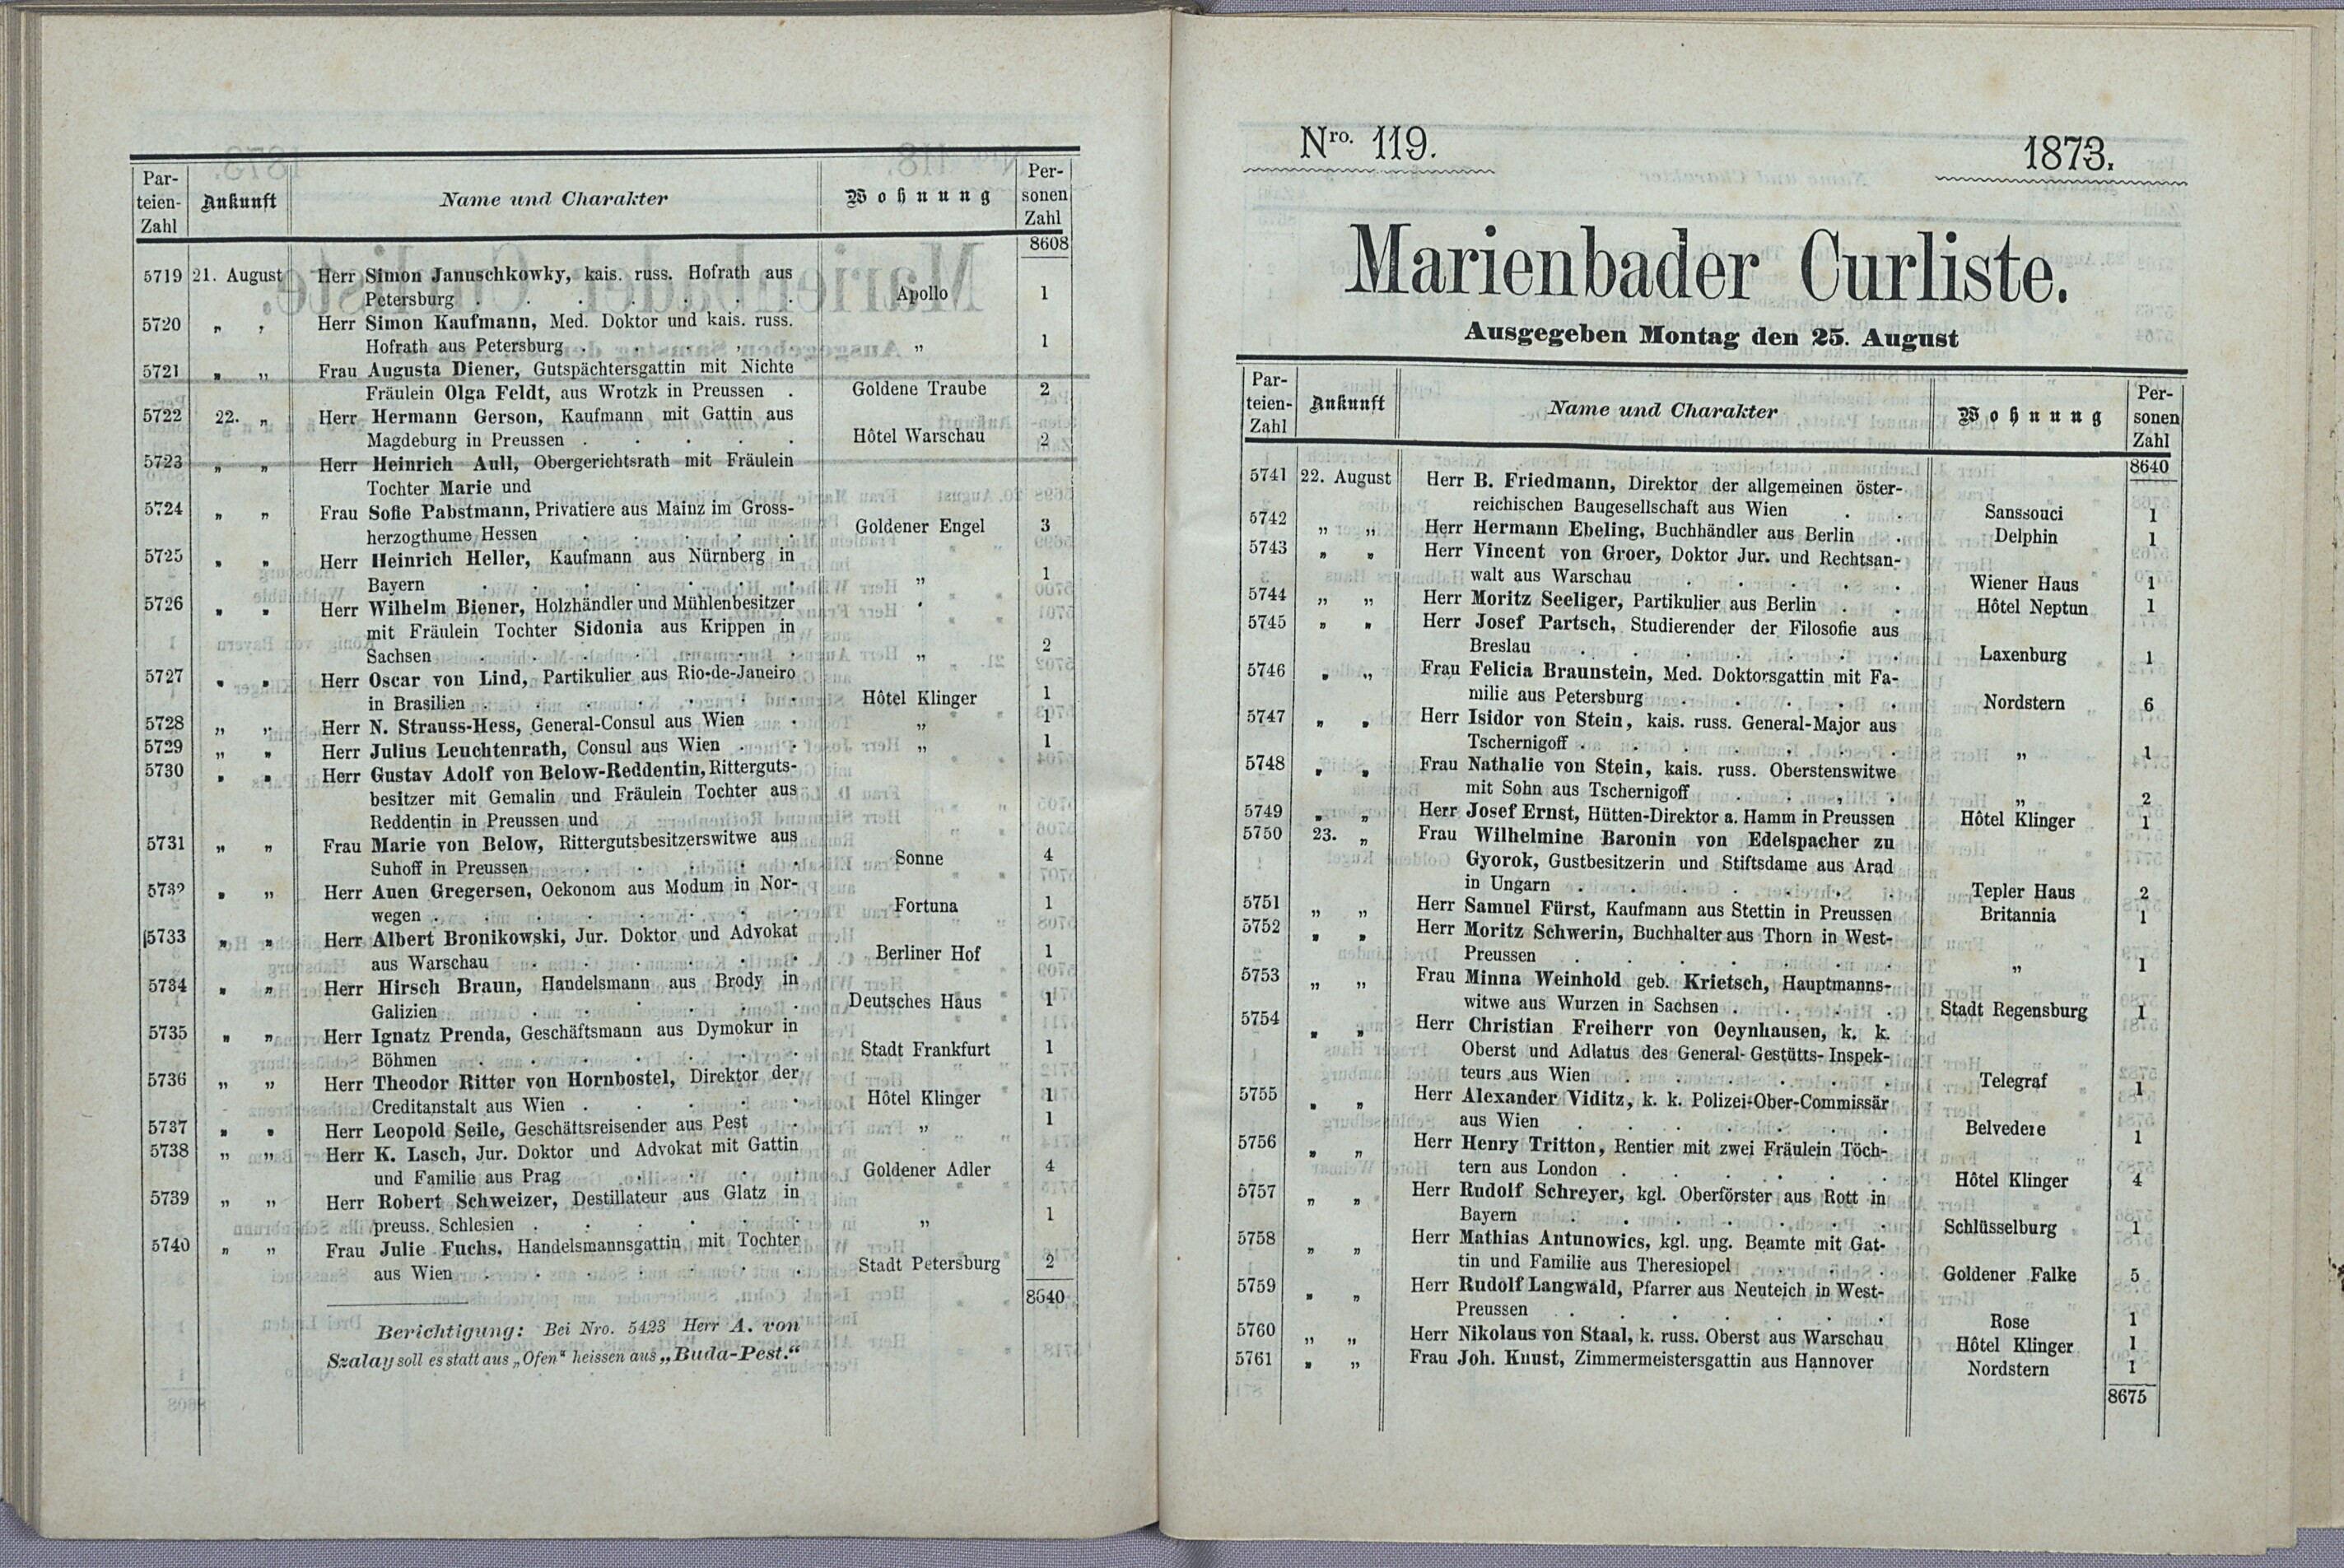 Par-
teien-
Zahl
Ankunft
Name und Charakter
Wohnung
Per-
sonen
Zahl
8608
5719 21. August Herr Simon Januschkowky, kais. russ. Hofrath aus
Petersburg . . . . . . . Apollo 1
5720 „ , Herr Simon Kaufmann, Med. Doktor und kais. russ.
Hofrath aus Petersburg . . . . . „ 1
5721 „ „ Frau Augusta Diener, Gutspächtersgattin mit Nichte
Fräulein Olga Feldt, aus Wrotzk in Preussen . Goldene Traube 2
5722 22. „ Herr Hermann Gerson, Kaufmann mit Gattin aus
Magdeburg in Preussen . . . . . Hôtel Warschau 2
5723 „ „ Herr Heinrich Aull, Obergerichtsrath mit Fräulein
Tochter Marie und
5724 „ „ Frau Sofie Pabstmann, Privatiere aus Mainz im Gross-
herzogthume Hessen . . . . . Goldener Engel 3
5725 „ „ Herr Heinrich Heller, Kaufmann aus Nürnberg in
Bayern . . . . . . . „ 1
5726 „ „ Herr Wilhelm Biener, Holzhändler und Mühlenbesitzer
mit Fräulein Tochter Sidonia aus Krippen in
Sachsen . . . . . . . „ 2
5727 „ „ Herr Oscar von Lind, Partikulier aus Rio-de-Janeiro
in Brasilien . . . . . . . Hôtel Klinger 1
5728 „ „ Herr N. Strauss-Hess, General-Consul aus Wien . „ 1
5729 „ „ Herr Julius Leuchtenrath, Consul aus Wien . . „ 1
5730 „ „ Herr Gustav Adolf von Below-Reddentin, Ritterguts-
besitzer mit Gemalin und Fräulein Tochter aus
Reddentin in Preussen und
5731 „ „ Frau Marie von Below, Rittergutsbesitzerswitwe aus
Suhoff in Preussen . . . . . Sonne 4
5732 „ „ Herr Auen Gregersen, Oekonom aus Modum in Nor-
wegen . . . . . . . . Fortuna 1
5733 „ „ Herr Albert Bronikowski, Jur. Doktor und Advokat
aus Warschau . . . . . . Berliner Hof 1
5734 „ „ Herr Hirsch Braun, Handelsmann aus Brody in
Galizien . . . . . . Deutsches Haus 1
5735 „ „ Herr Ignatz Prenda, Geschäftsmann aus Dymokur in
Böhmen . . . . . . . Stadt Frankfurt 1
5736 „ „ Herr Theodor Ritter von Hornbostel, Direktor der
Creditanstalt aus Wien . . . . . Hôtel Klinger 1
5737 „ „ Herr Leopold Seile, Geschäftsreisender aus Pest . „ 1
5738 „ „ Herr K. Lasch, Jur. Doktor und Advokat mit Gattin
und Familie aus Prag . . . . Goldener Adler 4
5739 „ „ Herr Robert Schweizer, Destillateur aus Glatz in
preuss. Schlesien . . . . . . „ 1
5740 „ „ Frau Julie Fuchs, Handelsmannsgattin mit Tochter
aus Wien . . . . . . . Stadt Petersburg 2
8640
Berichtigung: Bei Nro. 5423 Herr A. von
Szalay soll es statt aus „Ofen“ heissen aus „Buda-Pest.“
Nro. 119.
1873.
Marienbader Curliste.
Ausgegeben Montag den 25. August
Par-
teien-
Zahl
Ankunft
Name und Charakter
Wohnung
Per-
sonen
Zahl
8640
5741 22. August Herr B. Friedmann, Direktor der allgemeinen öster-
reichischen Baugesellschaft aus Wien . . Sanssouci 1
5742 „ „ Herr Hermann Ebeling, Buchhändler aus Berlin . Delphin 1
5743 „ „ Herr Vincent von Groer, Doktor Jur. und Rechtsan-
walt aus Warschau . . . . . Wiener Haus 1
5744 „ „ Herr Moritz Seeliger, Partikulier aus Berlin . . Hôtel Neptun 1
5745 „ „ Herr Josef Partsch, Studierender der Filosofie aus
Breslau . . . . . . . Laxenburg 1
5746 „ „ Frau Felicia Braunstein, Med. Doktorsgattin mit Fa-
milie aus Petersburg . . . . . Nordstern 6
5747 „ „ Herr Isidor von Stein, kais. russ. General-Major aus
Tschernigoff . . . . . . . „ 1
5748 „ „ Frau Nathalie von Stein, kais. russ. Oberstenswitwe
mit Sohn aus Tschernigoff . . . . „ 2
5749 „ „ Herr Josef Ernst, Hütten-Direktor a. Hamm in Preussen Hôtel Klinger 1
5750 23. „ Frau Wilhelmine Baronin von Edelspacher zu
Gyorok, Gustbesitzerin und Stiftsdame aus Arad
in Ungarn . . . . . . . Tepler Haus 2
5751 „ „ Herr Samuel Fürst, Kaufmann aus Stettin in Preussen Britannia 1
5752 „ „ Herr Moritz Schwerin, Buchhalter aus Thorn in West-
Preussen . . . . . . . „ 1
5753 „ „ Frau Minna Weinhold geb. Krietsch, Hauptmanns-
witwe aus Wurzen in Sachsen . . . . Stadt Regensburg 1
5754 „ „ Herr Christian Freiherr von Oeynhausen, k. k.
Oberst und Adlatus des General-Gestütts-Inspek-
teurs aus Wien . . . . . . Telegraf 1
5755 „ „ Herr Alexander Viditz, k. k. Polizei-Ober-Commissär
aus Wien . . . . . . . Belvedere 1
5756 „ „ Herr Henry Tritton, Rentier mit zwei Fräulein Töch-
tern aus London . . . . . . Hôtel Klinger 4
5757 „ „ Herr Rudolf Schreyer, kgl. Oberförster aus Rott in
Bayern . . . . . . . Schlüsselburg 1
5758 „ „ Herr Mathias Antunowics, kgl. ung. Beamte mit Gat-
tin und Familie aus Theresiopel . . . Goldener Falke 5
5759 „ „ Herr Rudolf Langwald, Pfarrer aus Neuteich in West-
Preussen . . . . . . . Rose 1
5760 „ „ Herr Nikolaus von Staal, k. russ. Oberst aus Warschau Hôtel Klinger 1
5761 „ „ Frau Joh. Knust, Zimmermeistersgattin aus Hannover Nordstern 1
8675